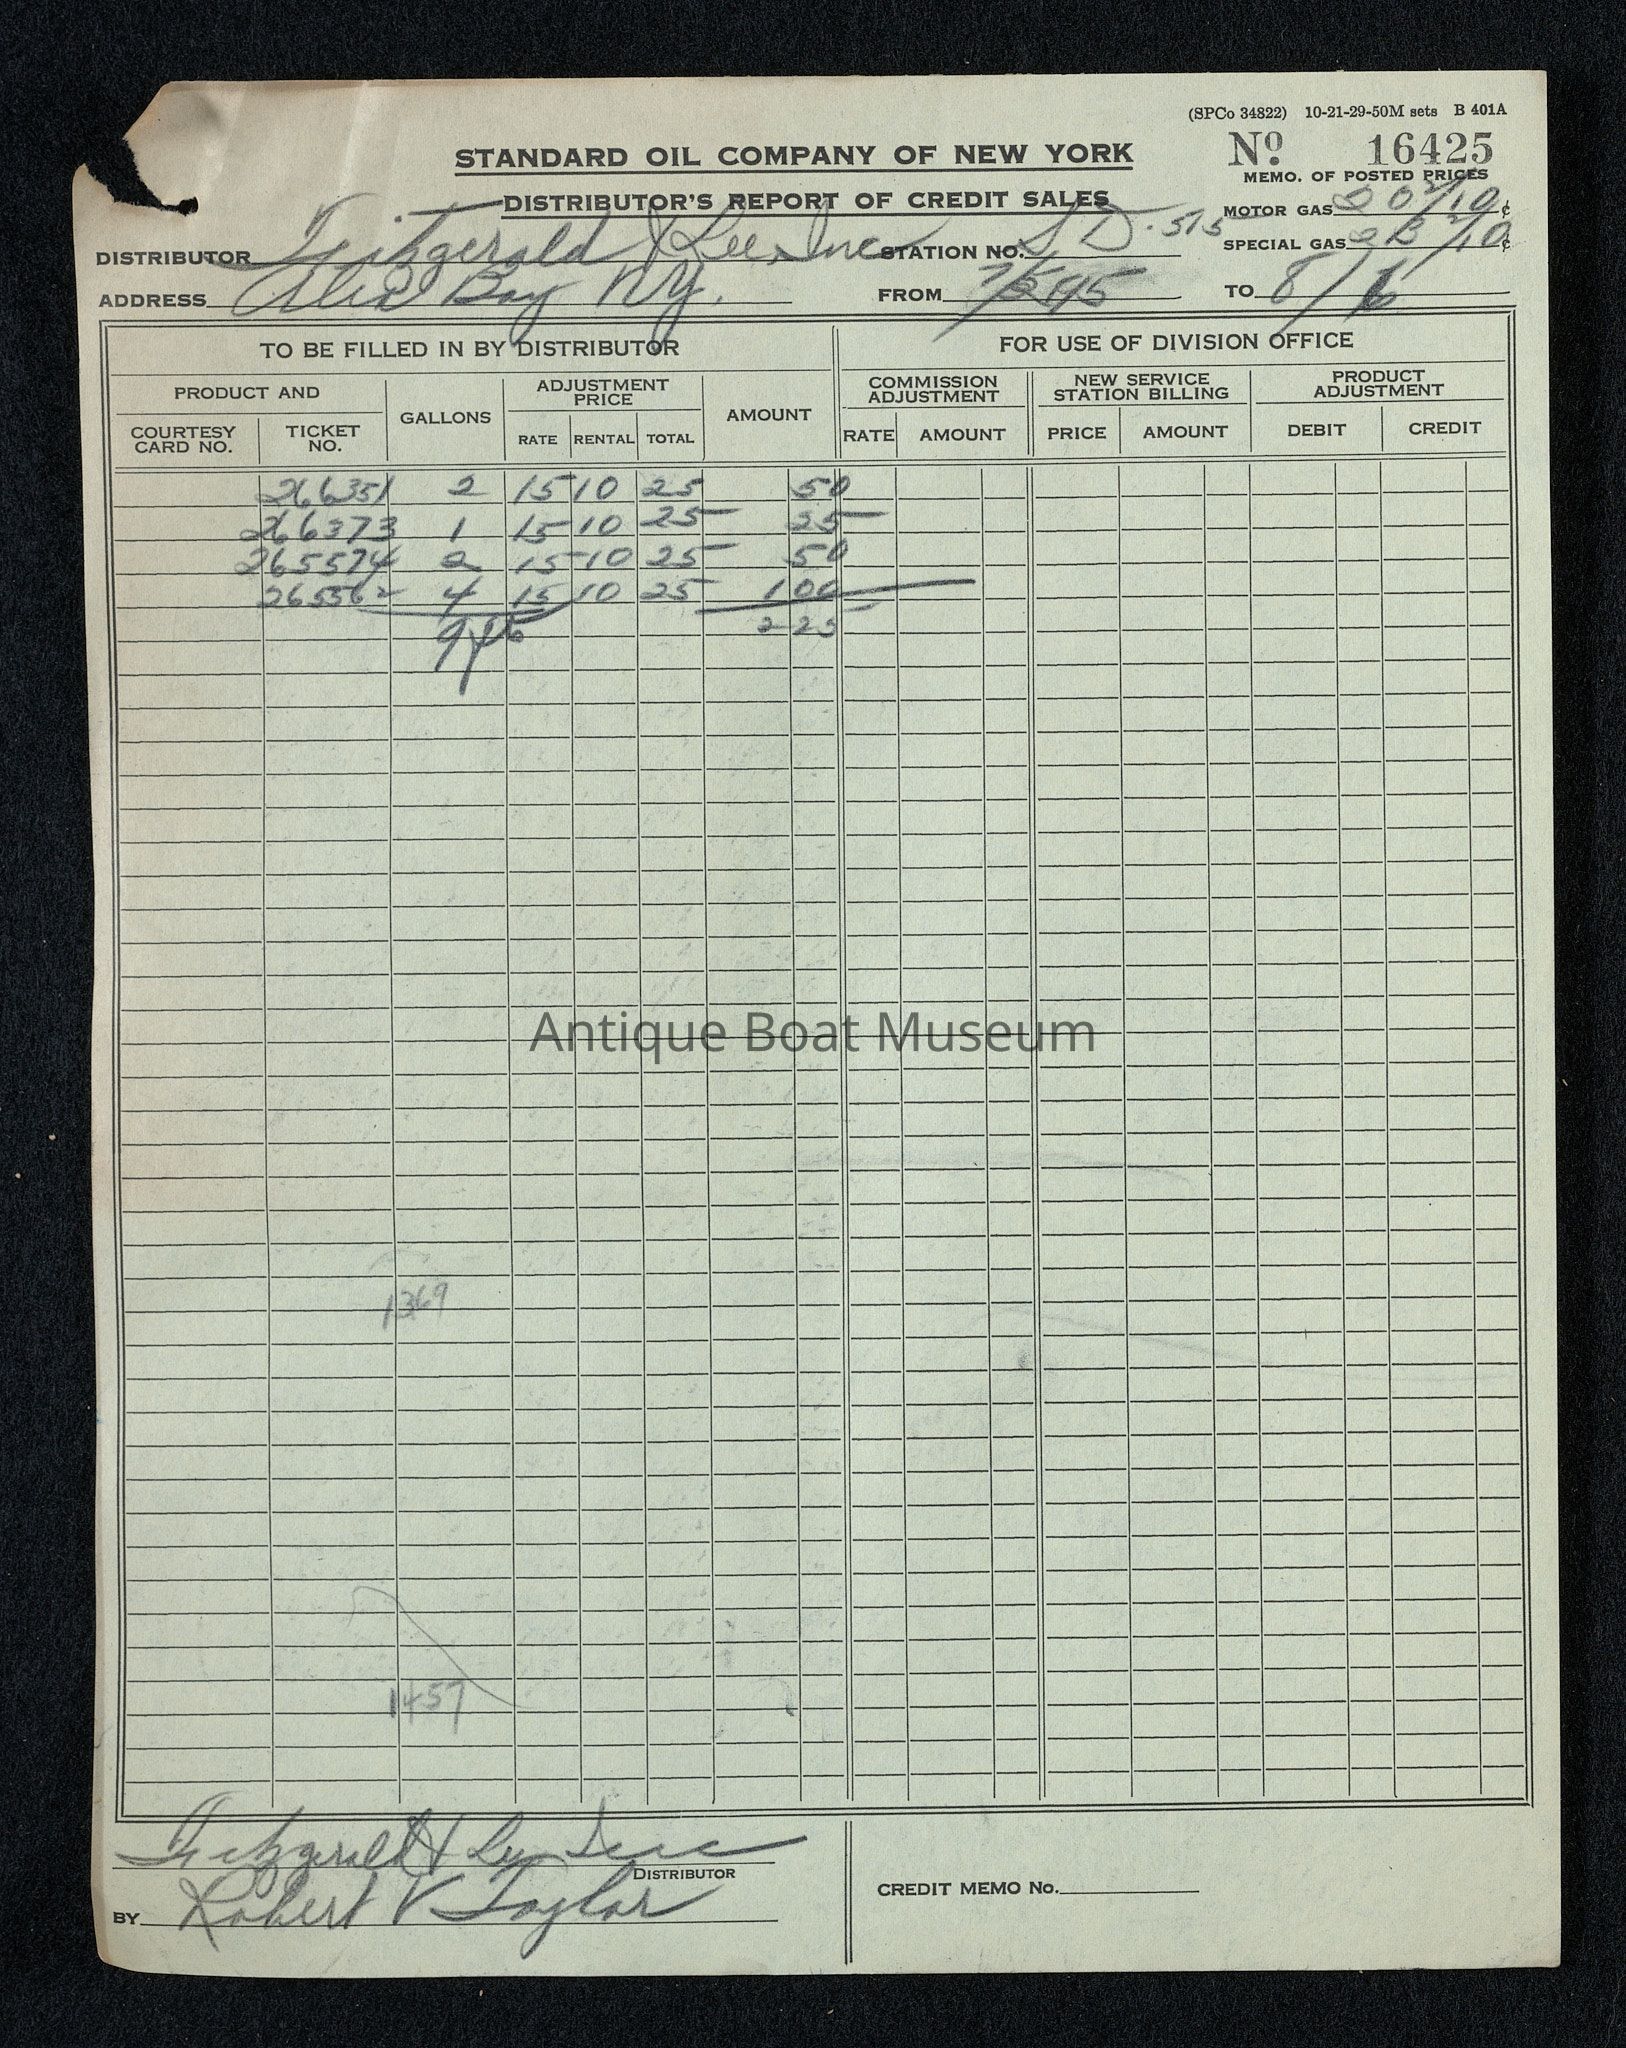 (SPCo 34822) 10-21-29-50M sets B 401A
STANDARD OIL COMPANY OF NEW YORK
No 16425
MEMO. OF POSTED PRICES
DISTRIBUTOR'S REPORT OF CREDIT SALES
MOTOR GAS 20 2/10 ¢
DISTRIBUTOR Fitzgerald & Lee, Inc STATION NO. S D-515 SPECIAL GAS 23 2/10 ¢
ADDRESS Alex Bay N.Y. FROM TO 8/
TO BE FILLED IN BY DISTRIBUTOR FOR USE OF DIVISION OFFICE
PRODUCT AND GALLONS ADJUSTMENT PRICE AMOUNT COMMISSION ADJUSTMENT NEW SERVICE STATION BILLING PRODUCT ADJUSTMENT
COURTESY CARD NO. TICKET NO. RATE RENTAL TOTAL RATE AMOUNT PRICE AMOUNT DEBIT CREDIT
266351 2 15 10 25 50
266373 1 15 10 25 25
265574 2 15 10 25 50
265562 4 15 10 25 100
9 225
Antique Boat Museum
1369
1457
Fitzgerald & Lee Inc
DISTRIBUTOR
BY Robert V Taylor
CREDIT MEMO No.